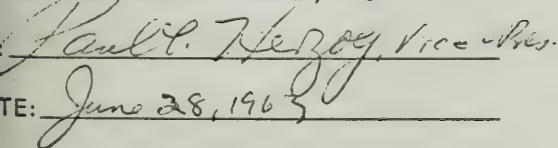 : Paul C. Herzog, Vice-Pres.
TE: June 28, 1963